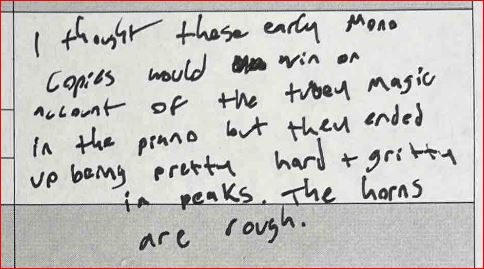 I thought these early mono
copies would win on
account of the tubey magic
in the piano but they ended
up being pretty hard + gritty
in peaks. The horns
are rough.